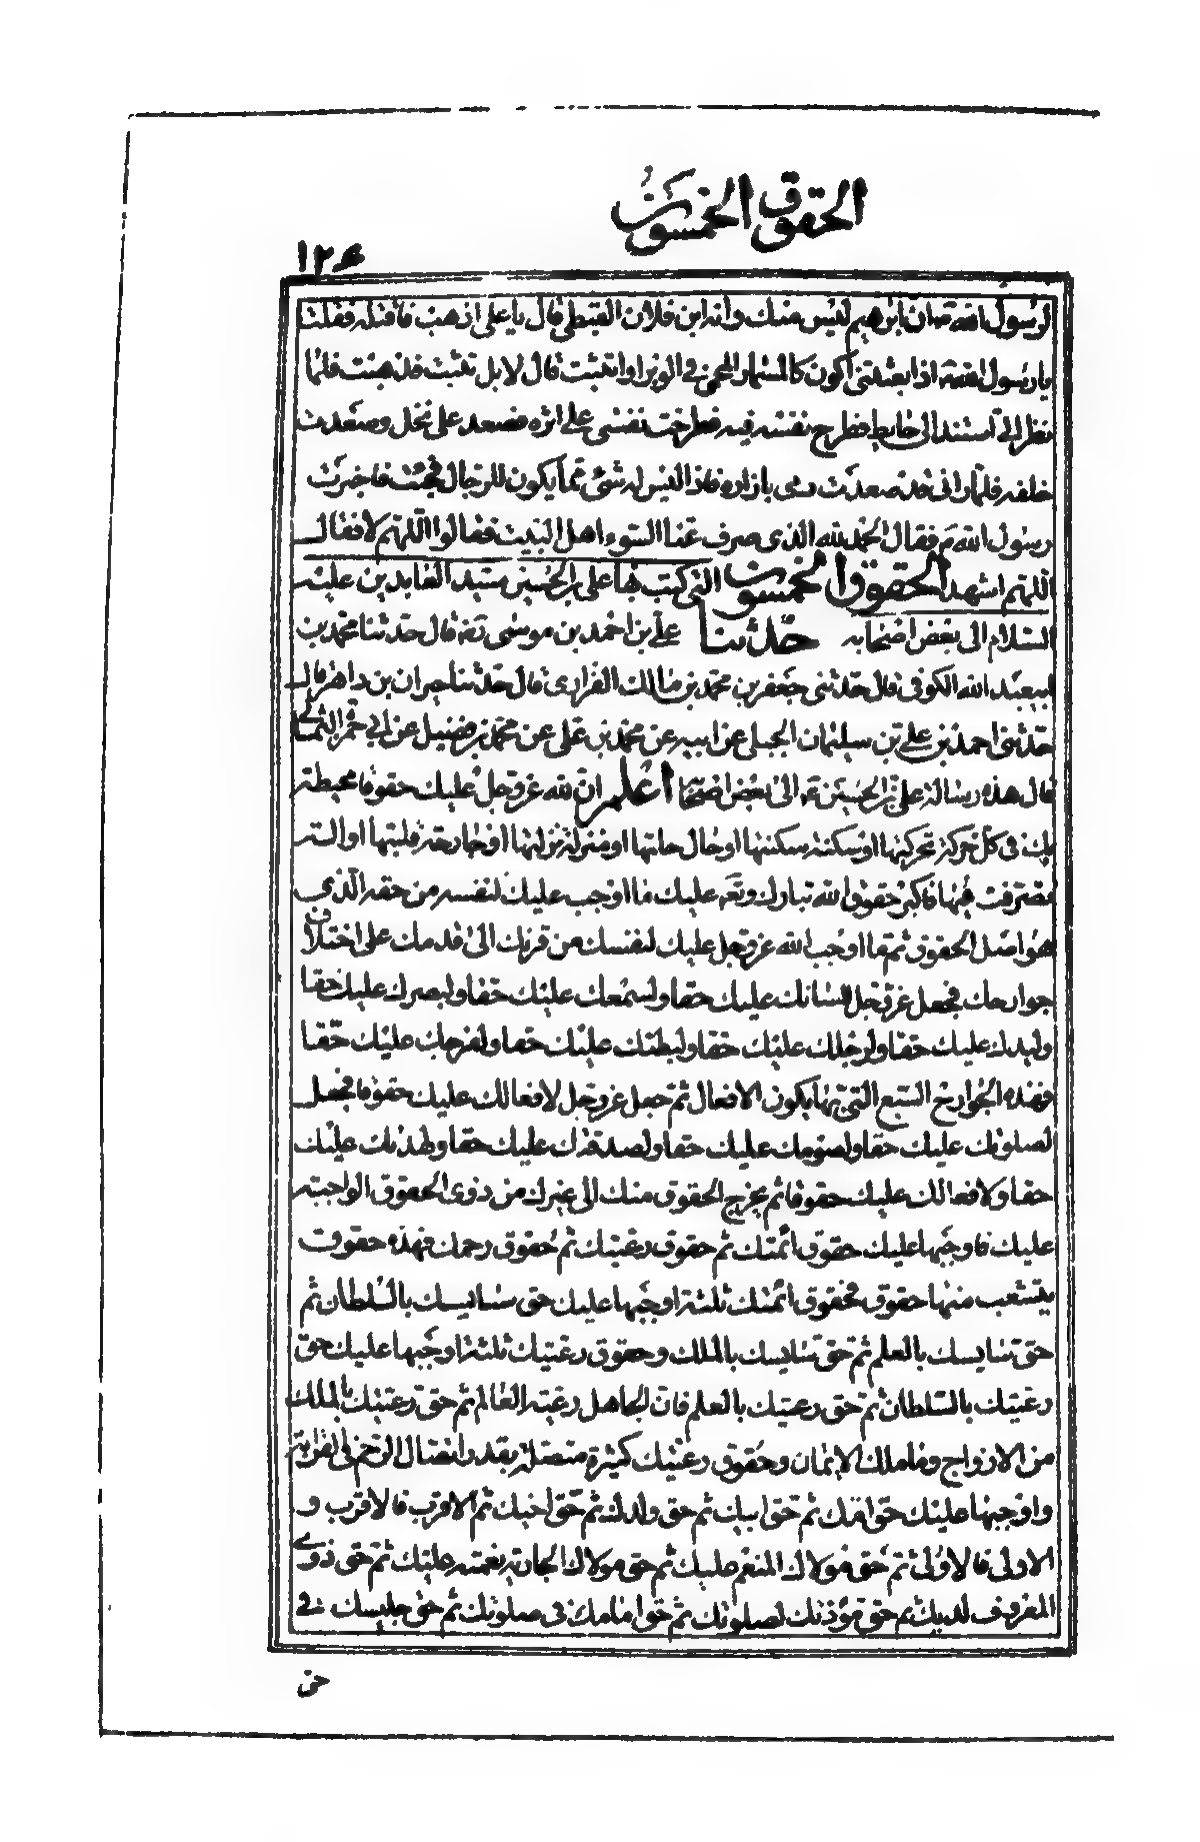 الحقوق الخمسون
١٢٤
لرسول الله ص ان ابرهيم ليس منك وانه ابن فلان القبطي قال يا علي اذهب فاقتله فقلت
يا رسول الله ص اذا بعثتني اكون كالمسمار المحمى في الوبر او اتثبت قال لا بل تثبت فذهبت فلما
نظر الي استند الى حايط فطرح نفسه فيه فطرحت نفسي على اثره فصعد على نخل وصعدت
خلفه فلما راني قد صعدت رمى بازاره فاذا ليس له شئ مما يكون للرجال فجئت فاخبرت
رسول الله ص فقال الحمد لله الذي صرف عنا السوء اهل البيت فقالوا اللهم لا فقال
اللهم اشهد الحقوق الخمسون التي كتب بها علي بن الحسين سيد العابدين عليه
السلام الى بعض اصحابه حدثنا علي بن احمد بن موسى رضه قال حدثنا محمد بن
ابيعبد الله الكوفي قال حدثني جعفر بن محمد بن مالك الفزاري قال حدثنا خيران بن داهر قال
حدثني احمد بن علي بن سليمان الجبلي عن ابيه عن محمد بن علي عن محمد بن فضيل عن ابي حمزة الثمالي
قال هذه رسالة علي بن الحسين ع الى بعض اصحابه اعلم ان لله عز وجل عليك حقوقا محيطة
بك في كل حركة تحركتها او سكنة سكنتها او حال حلتها او منزلة نزلتها او جارحة قلبتها او الة
تصرفت فيها فاكبر حقوق الله تبارك وتعه عليك ما اوجب عليك لنفسه من حقه الذي
هو اصل الحقوق ثم ما اوجب الله عز وجل عليك لنفسك من قرنك الى قدمك على اختلاف
جوارحك فجعل عز وجل للسانك عليك حقا ولسمعك عليك حقا ولبصرك عليك حقا
وليدك عليك حقا ولرجلك عليك حقا ولبطنك عليك حقا ولفرجك عليك حقا
فهذه الجوارح السبع التي بها يكون الافعال ثم جعل عز وجل لافعالك عليك حقوقا فجعل
لصلوتك عليك حقا ولصومك عليك حقا ولصدقتك عليك حقا ولهديك عليك
حقا ولافعالك عليك حقوقا ثم يخرج الحقوق منك الى غيرك من ذوى الحقوق الواجبة
عليك فاوجبها عليك حقوق ائمتك ثم حقوق رعيتك ثم حقوق رحمك فهذه حقوق
يتشعب منها حقوق فحقوق ائمتك ثلثة اوجبها عليك حق سايسك بالسلطان ثم
حق سايسك بالعلم ثم حق سايسك بالملك وحقوق رعيتك ثلثة اوجبها عليك حق
رعيتك بالسلطان ثم حق رعيتك بالعلم فان الجاهل رعية العالم ثم حق رعيتك بالملك
من الازواج وما ملك الايمان وحقوق رعيتك كثيرة متصلة بقدر اتصال الرحم في القرابة
واوجبها عليك حق امك ثم حق ابيك ثم حق ولدك ثم حق اخيك ثم الاقرب فالاقرب و
الاولى فالاولى ثم حق مولاك المنعم عليك ثم حق مولاك الجارية نعمته عليك ثم حق ذوي
المعروف لديك ثم حق مؤذنك لصلوتك ثم حق امامك في صلوتك ثم حق جليسك ثم
حق